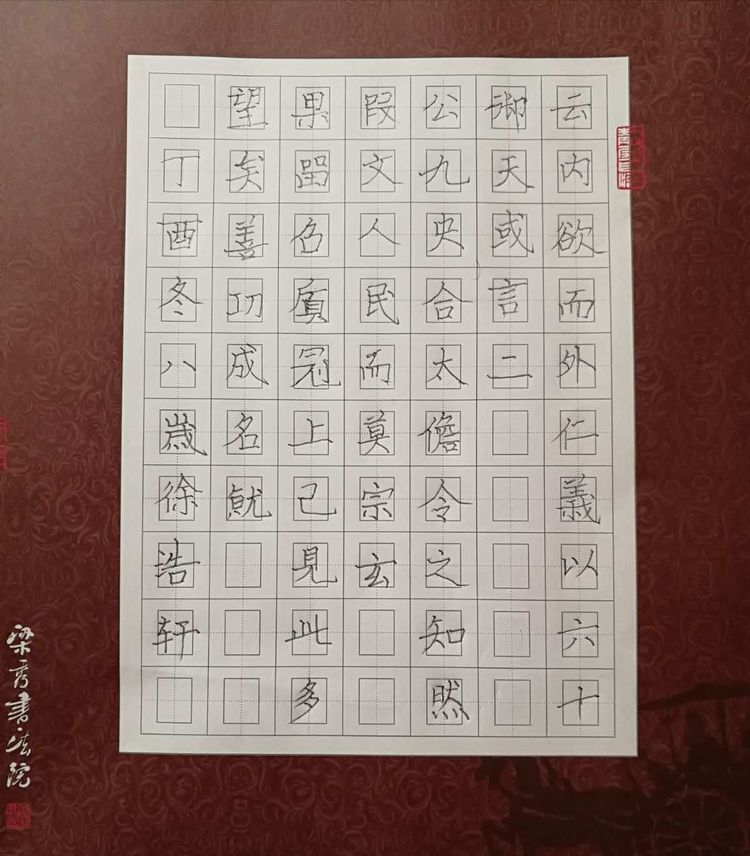 云内欲而外仁義以六十
御天或言二
公九央合太儋令之知然
段文人民而莫宗玄
果留色質冠上己見此多
望矣善功成名就
丁酉冬八歲徐浩軒
梁秀書法院